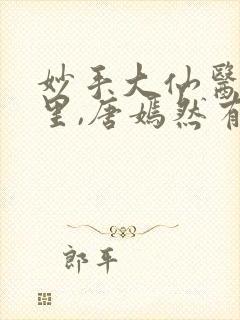 妙手大仙醫
里,唐嫣然有
郎平